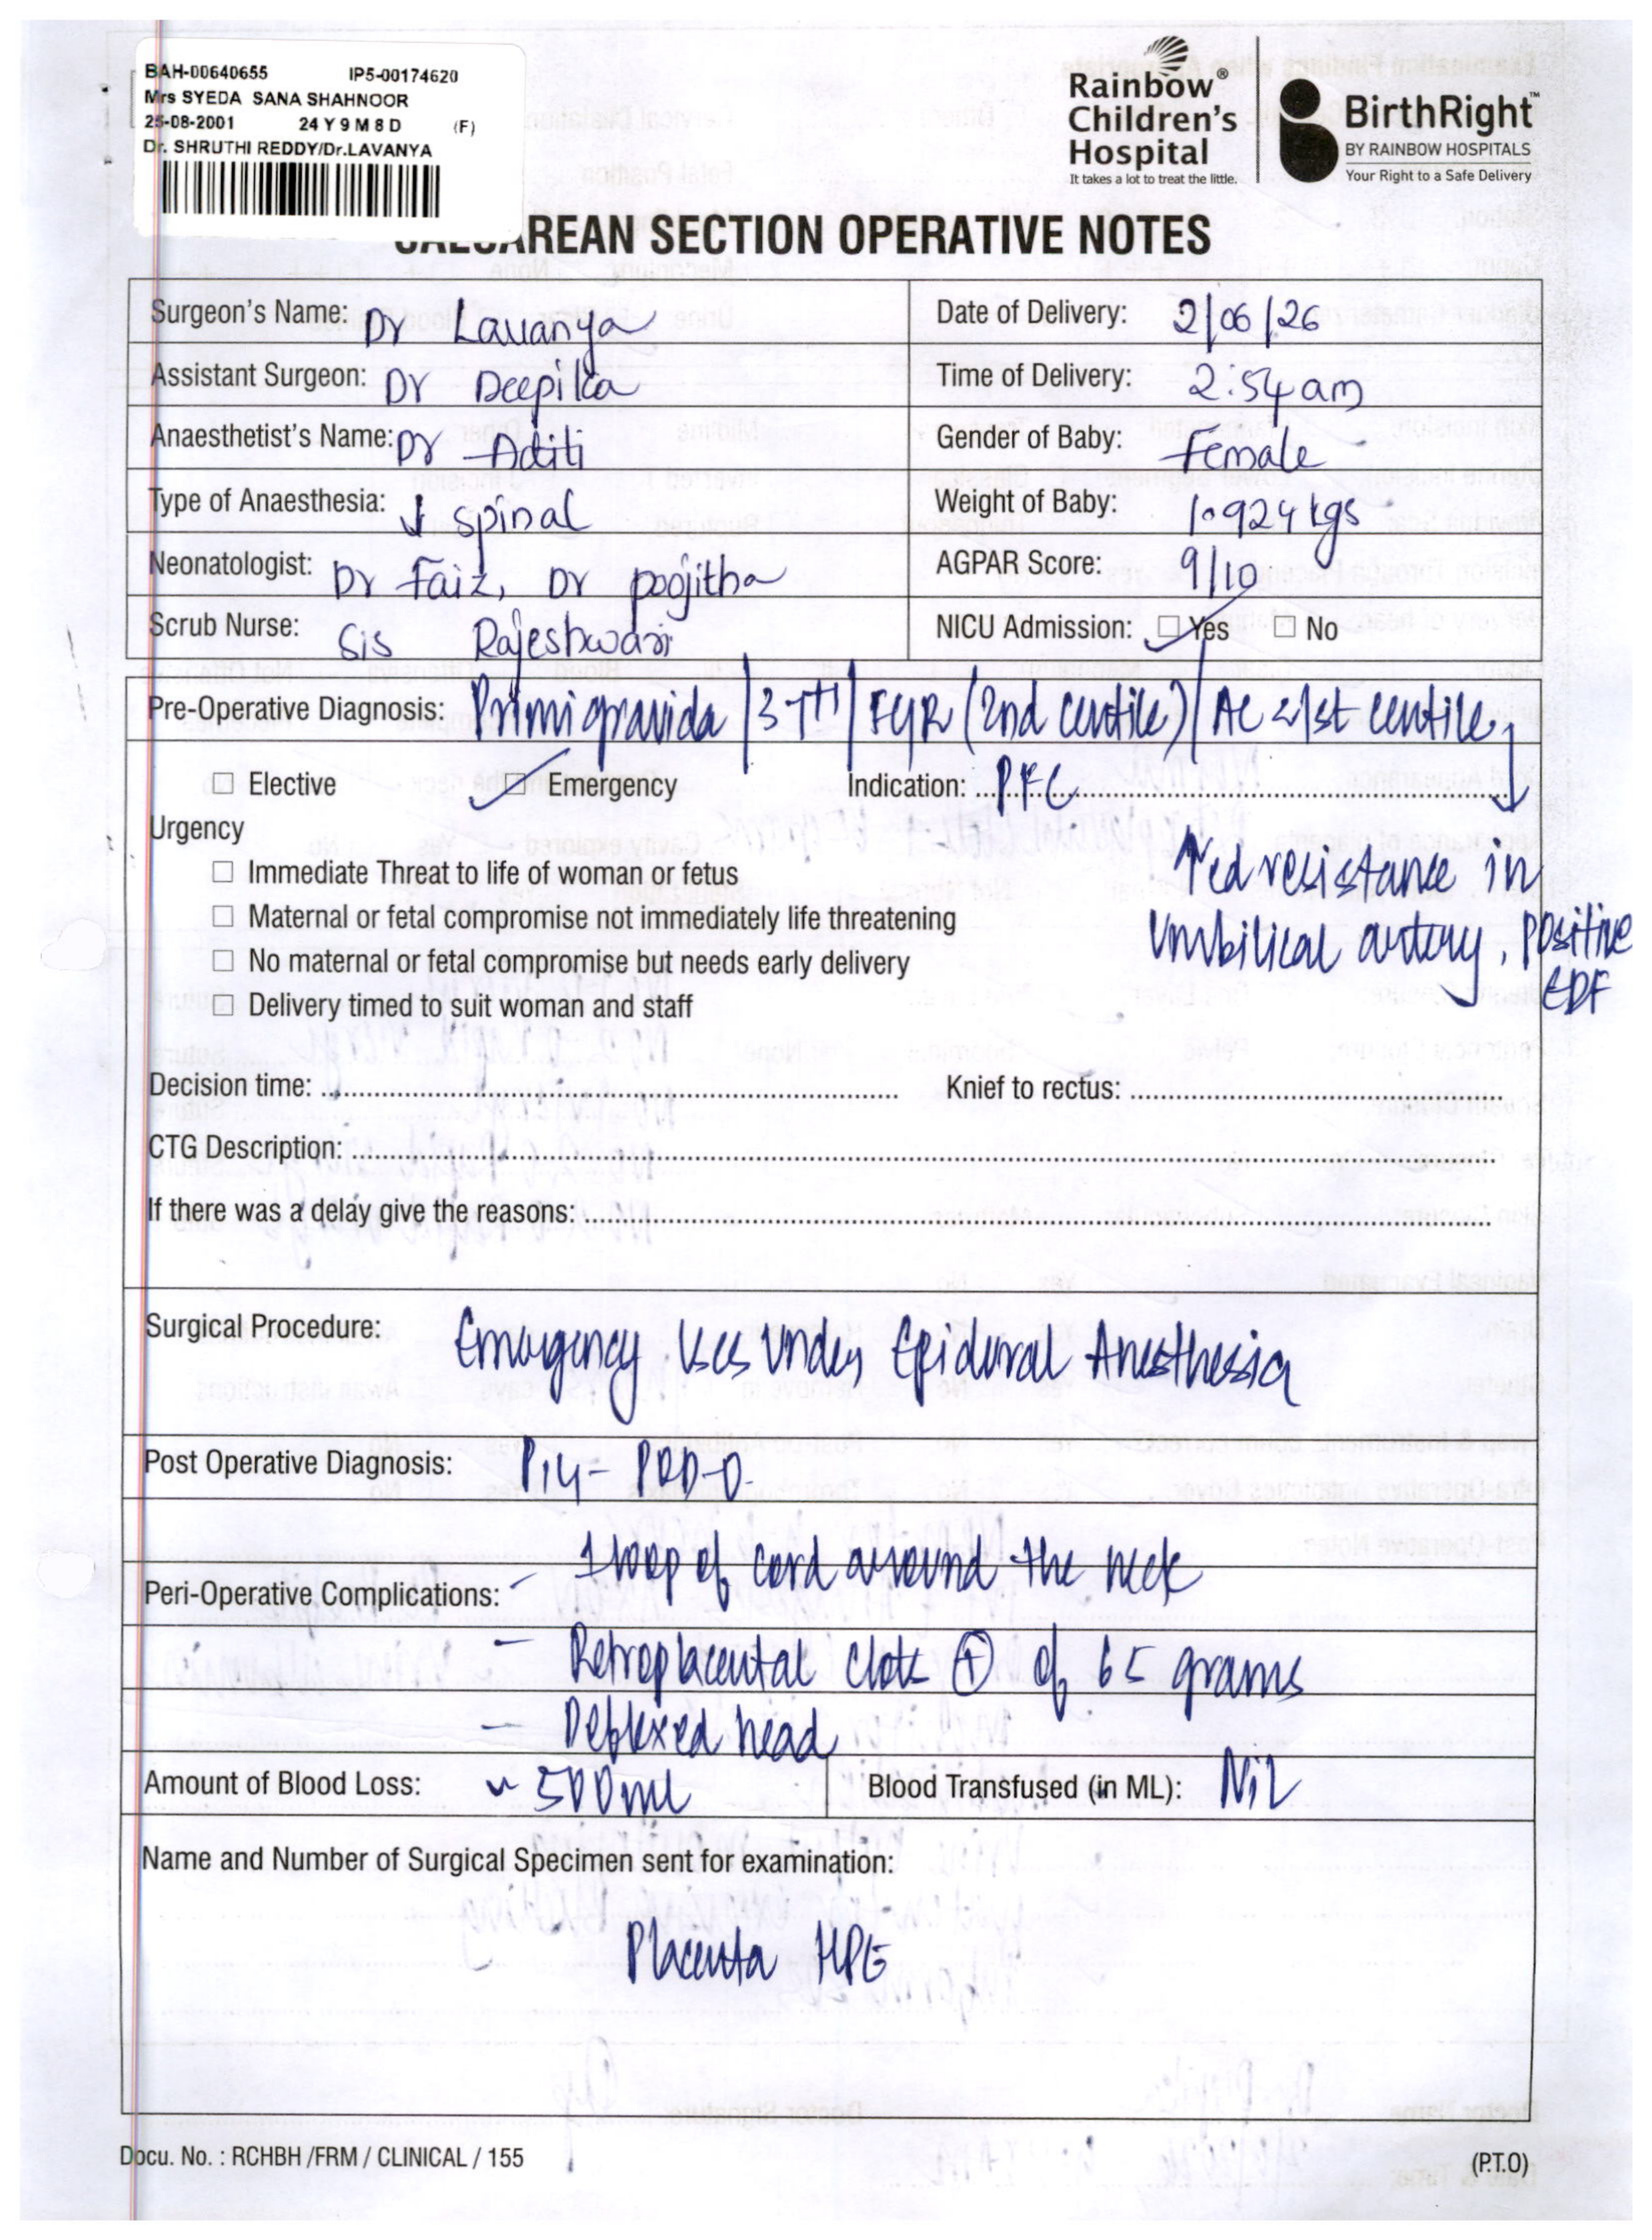 BAH-00640655 IP5-00174620
Mrs SYEDA SANA SHAHNOOR
25-08-2001 24 Y 9 M 8 D (F)
Dr. SHRUTHI REDDY/Dr.LAVANYA
Rainbow® Children's Hospital
It takes a lot to treat the little.
BirthRight™
BY RAINBOW HOSPITALS
Your Right to a Safe Delivery
CAESAREAN SECTION OPERATIVE NOTES
Surgeon's Name: Dr Lavanya Date of Delivery: 2/06/26
Assistant Surgeon: Dr Deepika Time of Delivery: 2:54 am
Anaesthetist's Name: Dr Aditi Gender of Baby: Female
Type of Anaesthesia: ↓ spinal Weight of Baby: 1.924 kgs
Neonatologist: Dr Faiz, Dr poojitha AGPAR Score: 9/10
Scrub Nurse: Sis Rajeshwari NICU Admission: ☑ Yes ☐ No
Pre-Operative Diagnosis: Primigravida / / FGR (2nd centile) / AC <1st centile,
☐ Elective ☑ Emergency Indication: ↓
Urgency
☐ Immediate Threat to life of woman or fetus
↑ed resistance in
☐ Maternal or fetal compromise not immediately life threatening
Umbilical artery, positive
☐ No maternal or fetal compromise but needs early delivery
EDF
☐ Delivery timed to suit woman and staff
Decision time: Knief to rectus:
CTG Description:
If there was a delay give the reasons:
Surgical Procedure: Emergency LSCS Under Epidural Anesthesia
Post Operative Diagnosis: P1L1 - POD-0
Peri-Operative Complications: - 1 loop of cord around the neck
- Retroplacental clots ⊕ of 65 grams
- Deflexed head
Amount of Blood Loss: ~ 500ml Blood Transfused (in ML): Nil
Name and Number of Surgical Specimen sent for examination:
Placenta HPE
Docu. No. : RCHBH /FRM / CLINICAL / 155 (P.T.O)